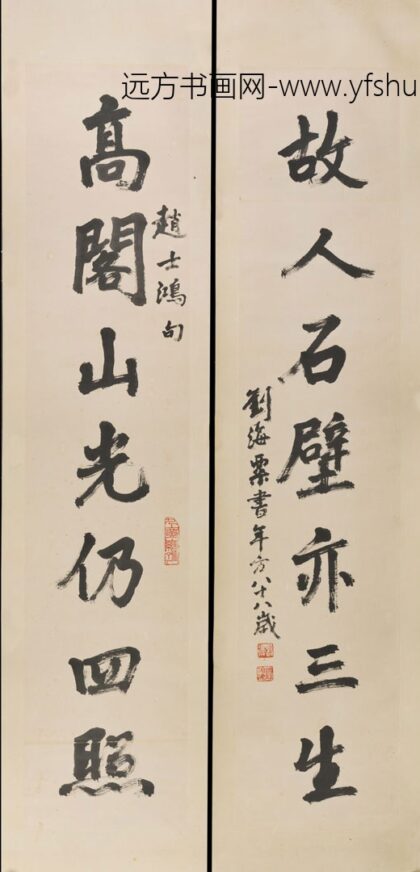 远方书画网-www.yfshu
髙閣山光仍四照
趙士鴻句
故人石壁亦三生
劉海粟書年方八十八歲